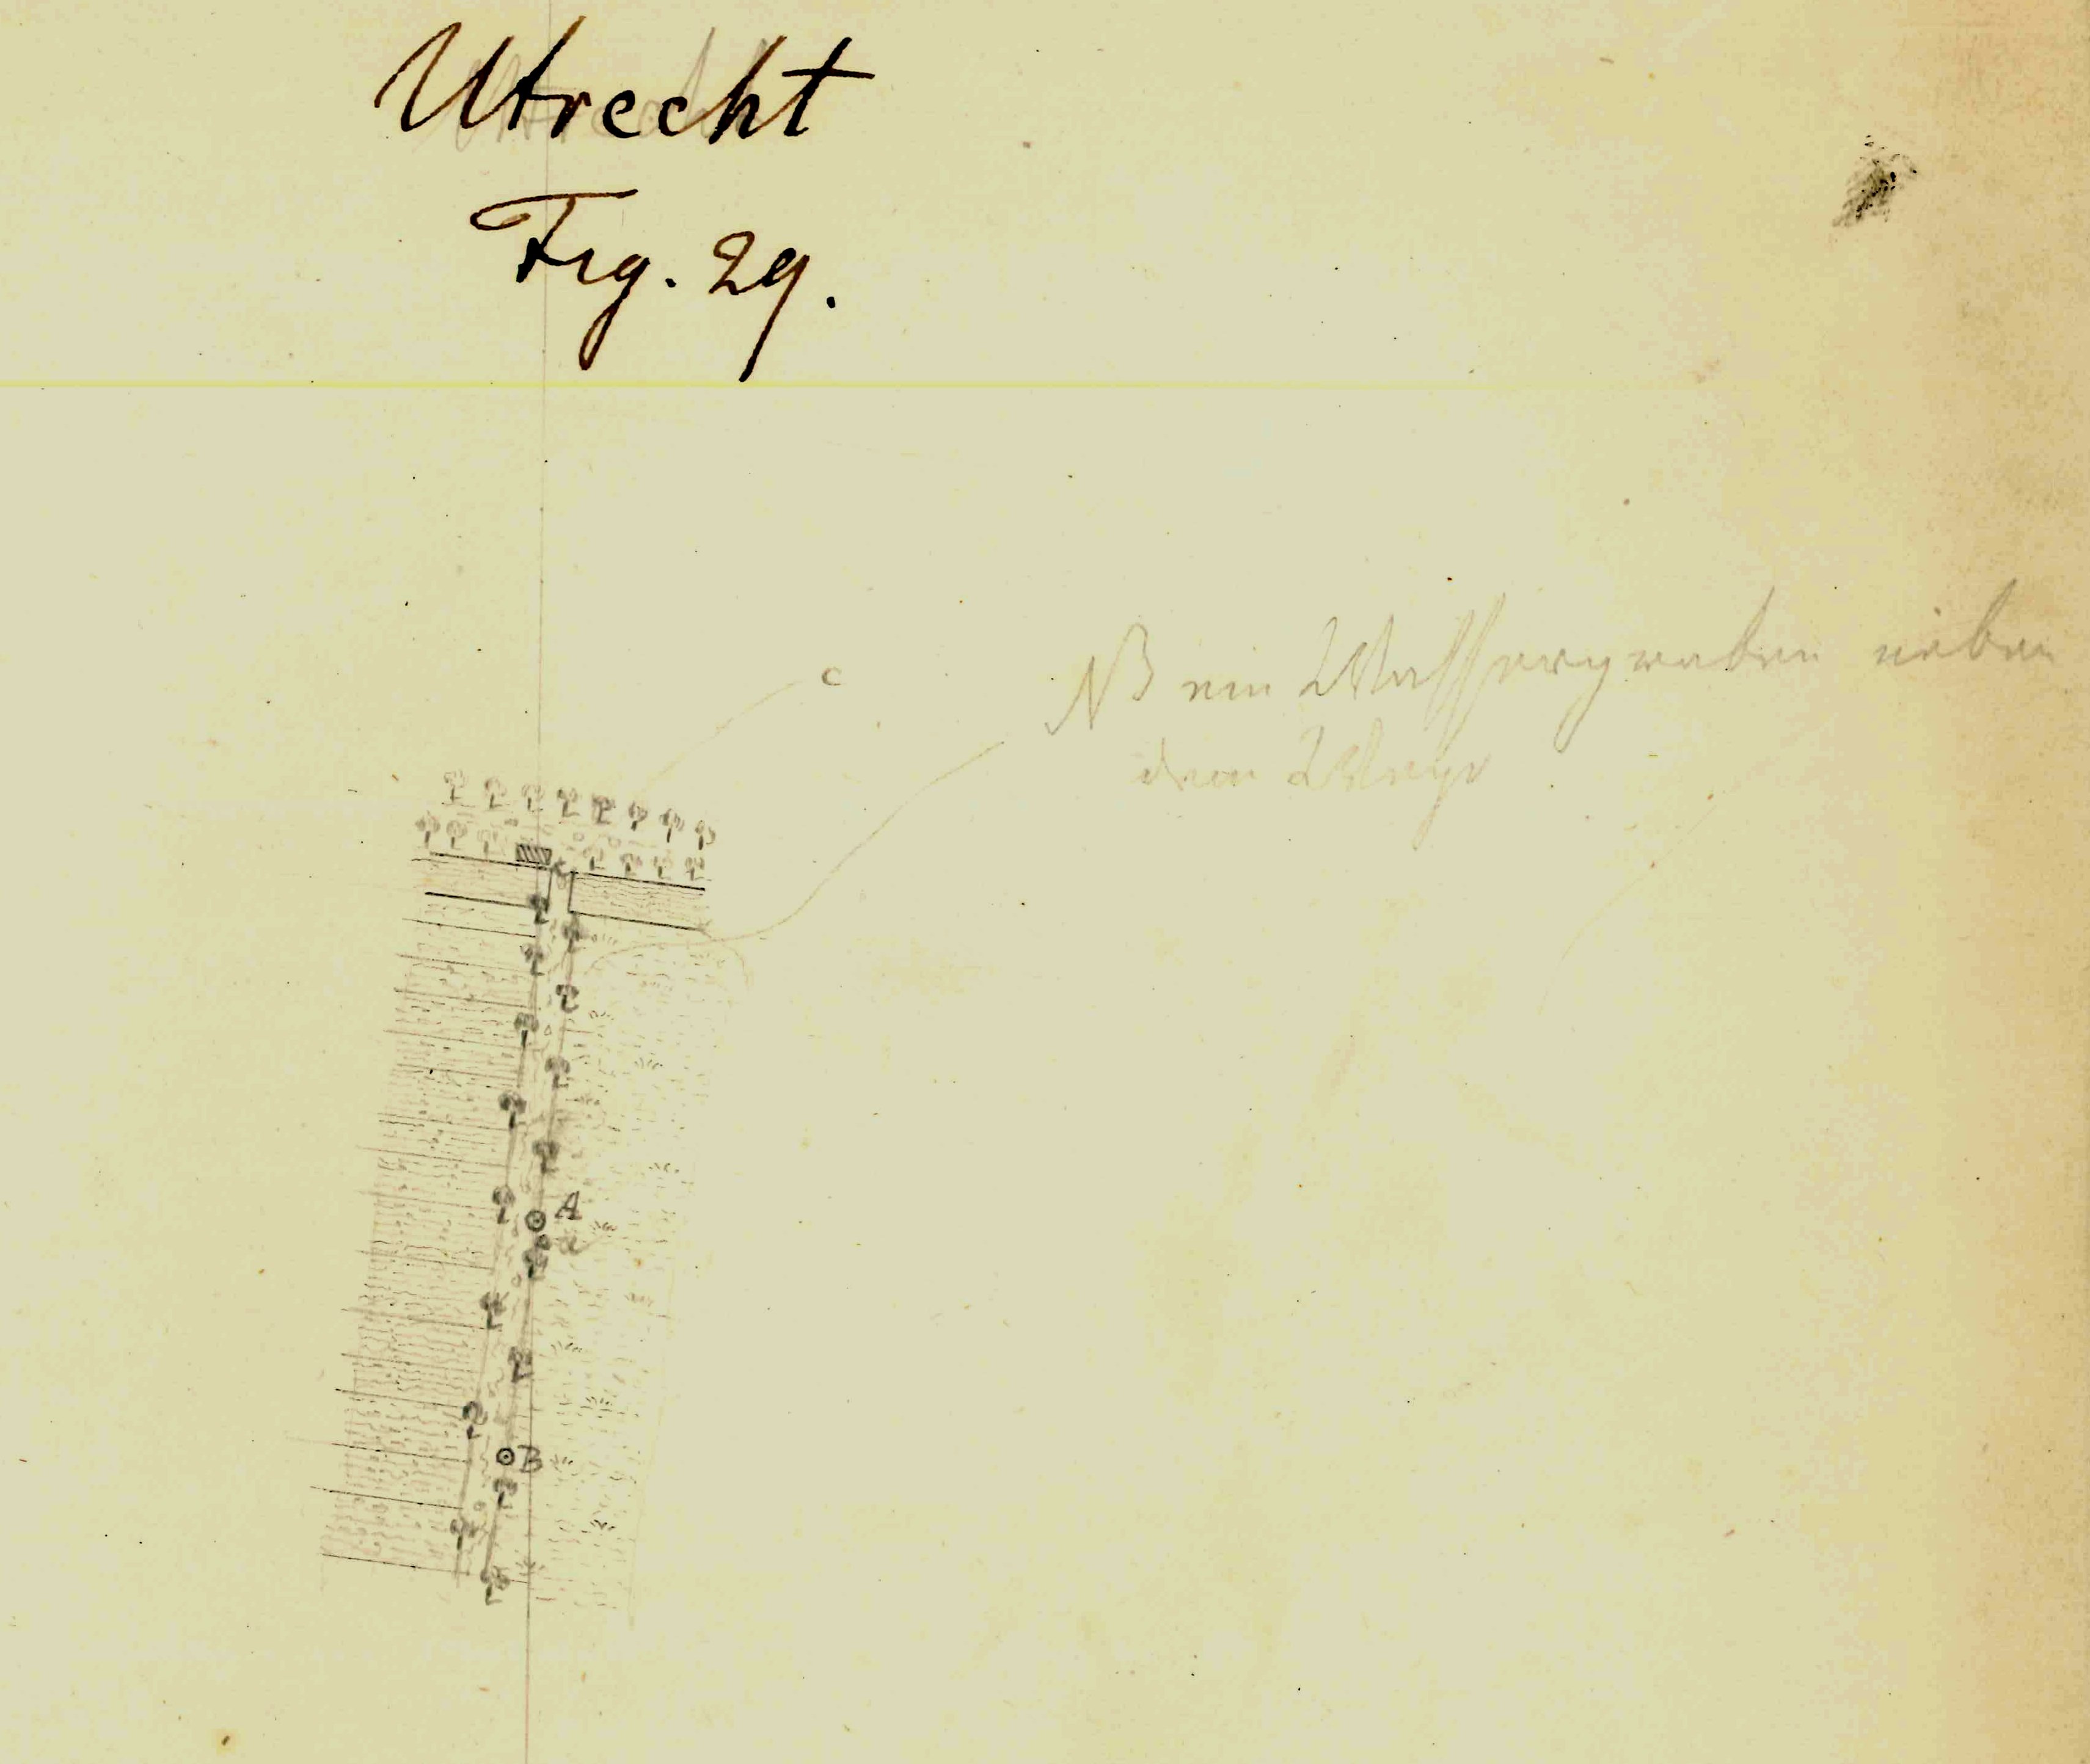 Utrecht
Fig. 29.
c
NB ein Wassergraben neben
dem Wege
A
a
B